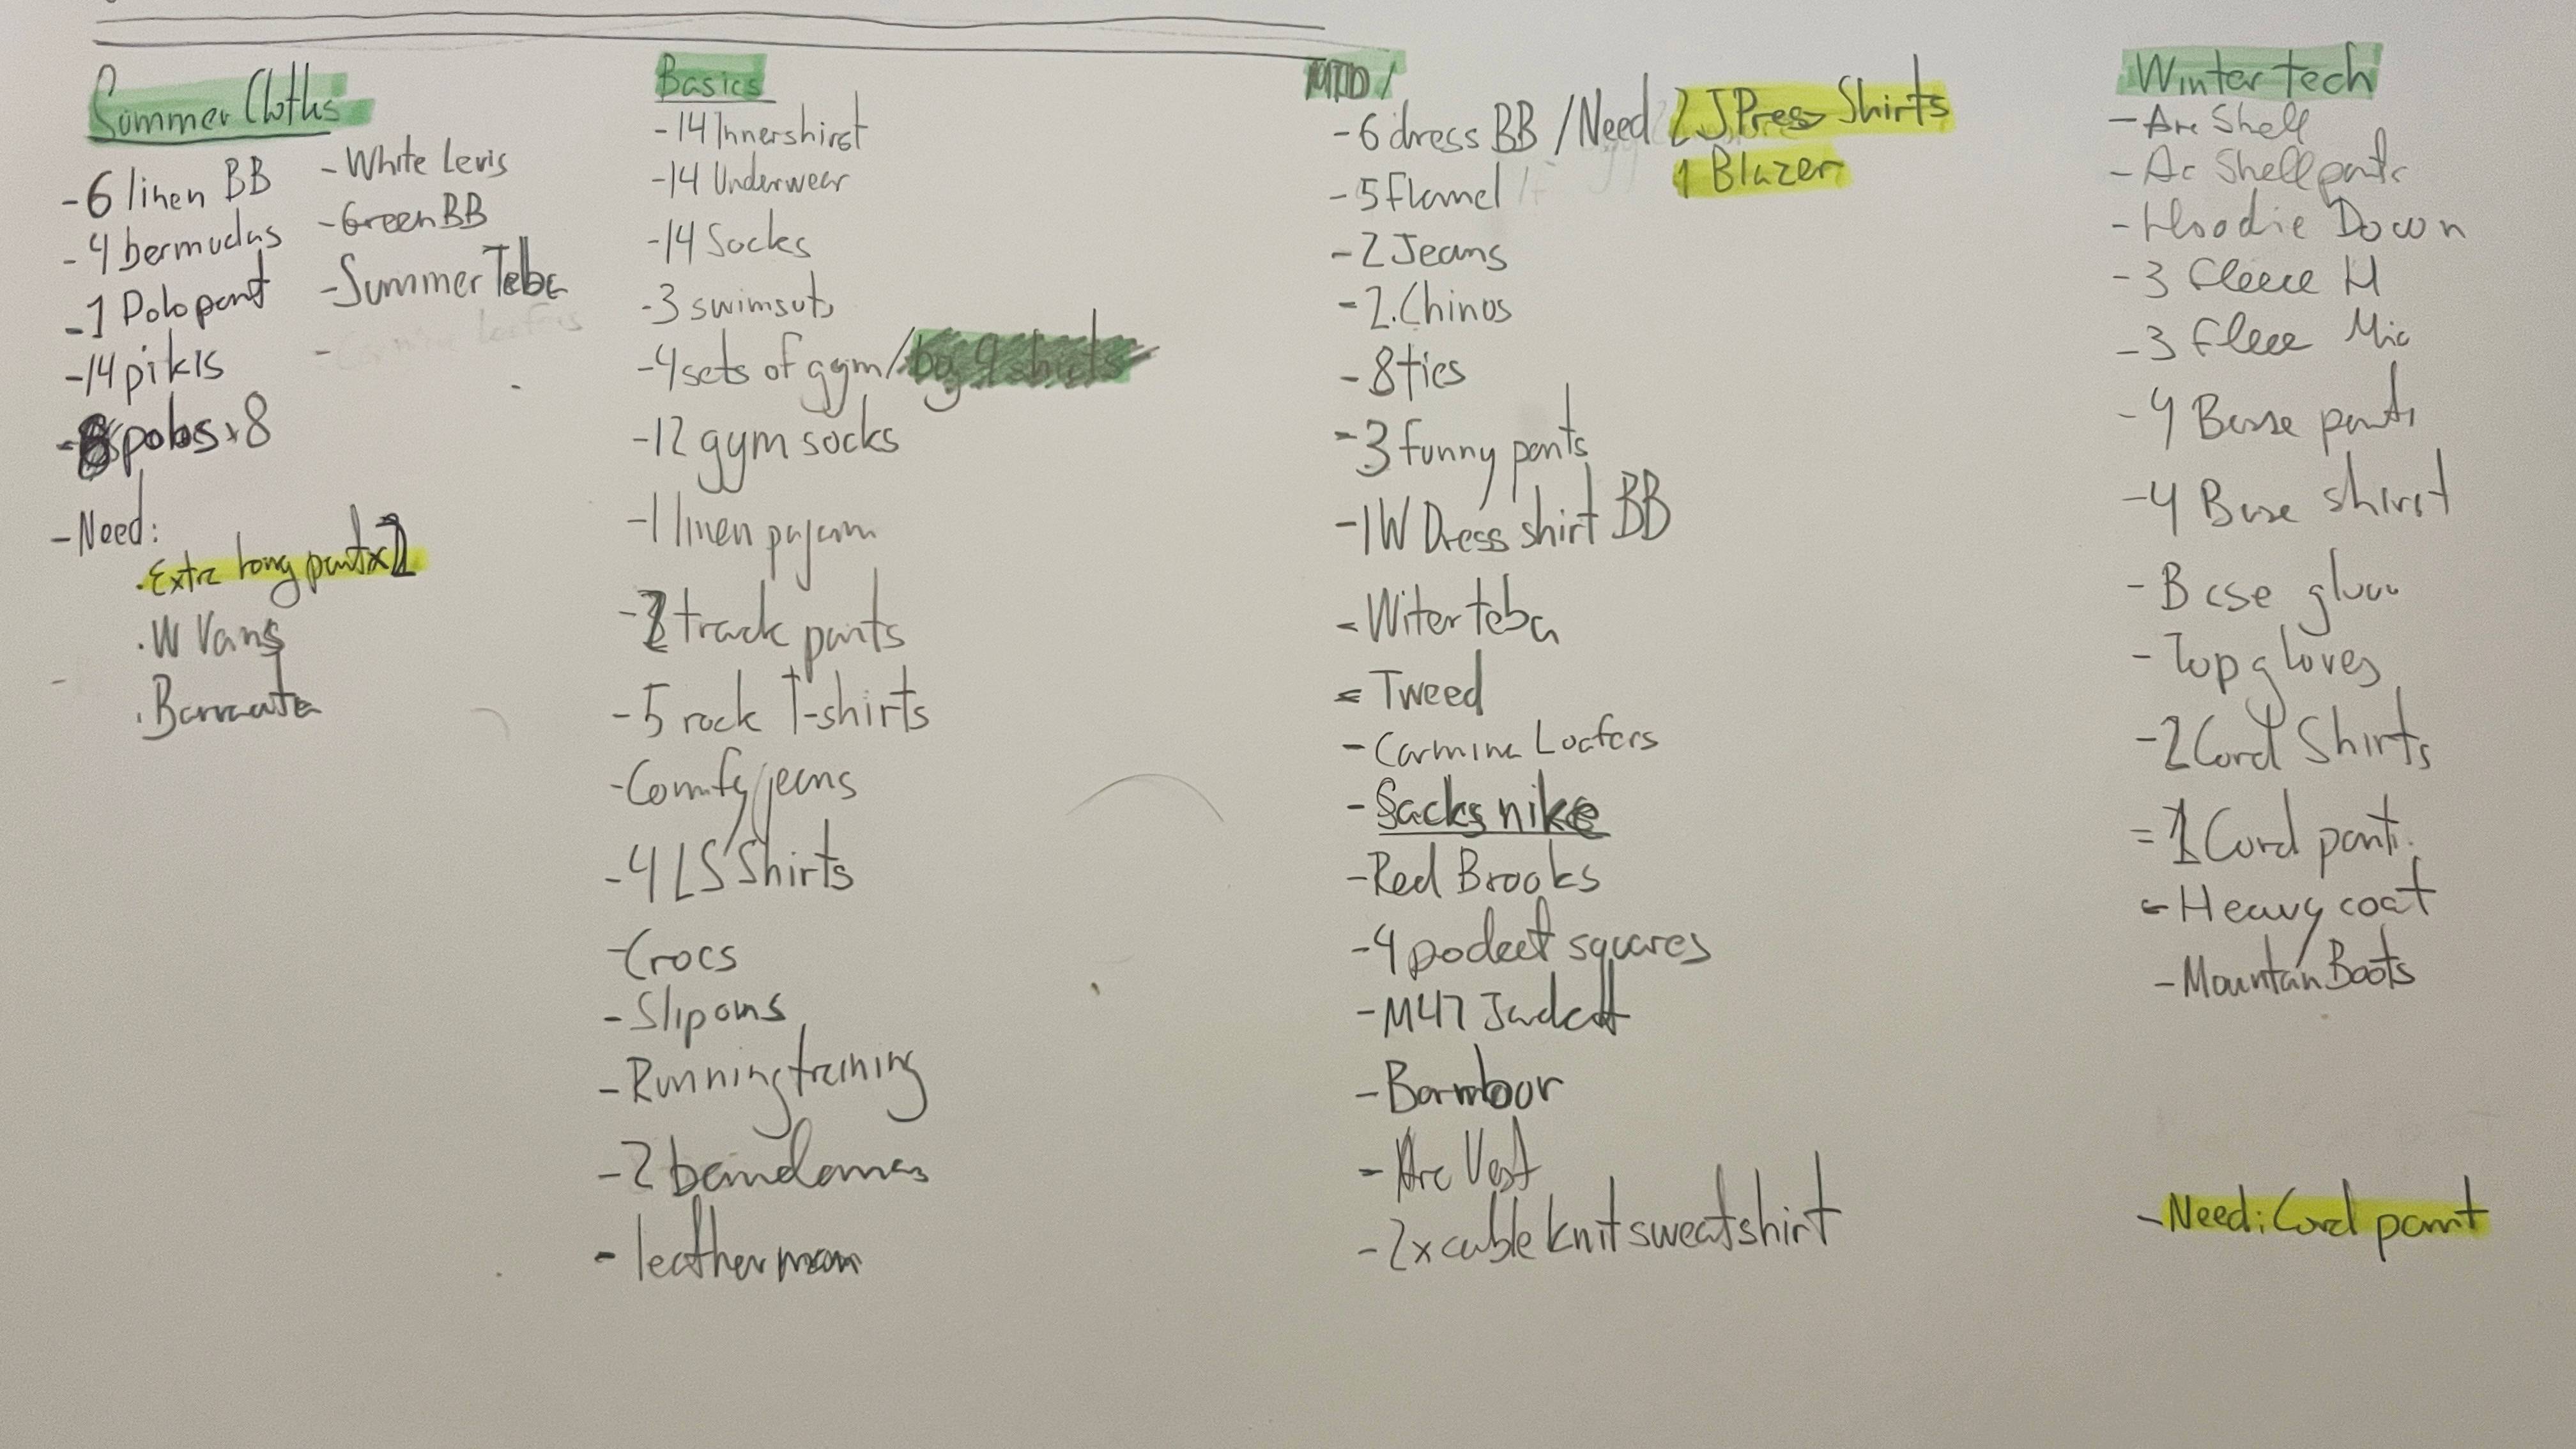 Summer Cloths
- 6 linen BB
- 4 bermudas
- 1 Polo pant
- 14 pikis
- polos x 8
- White Levis
- Green BB
- Summer Teba
- Need:
. Extra long pant x
. W Vans
. Barracuta
Basics
- 14 Innershirst
- 14 Underwear
- 14 Socks
- 3 swimsuts
- 4 sets of gym / 
- 12 gym socks
- 1 linen pajam
- track pants
- 5 rock T-shirts
- Comfy jeans
- 4 LS Shirts
- Crocs
- Slipons
- Running training
- 2 bandanas
- leatherman
MID /
- 6 dress BB / Need 2 J Press Shirts
1 Blazer
- 5 Flannel
- 2 Jeans
- 2 . Chinos
- 8 ties
- 3 funny pants
- 1 W Dress shirt BB
- Witer teba
- Tweed
- Carmina Loafers
- Sacks nike
- Red Brooks
- 4 pocket squares
- M47 Jacket
- Barbour
- Arc Vest
- 2x cable knit sweatshirt
Winter tech
- Arc Shell
- Ac Shell pants
- Hoodie Down
- 3 fleece H
- 3 fleee Mic
- 4 Base pants
- 4 Base shirst
- Base
- Top gloves
- 2 Cord Shirts
- 1 Cord pant.
- Heavy coat
- Mountan Boots
- Need: Cord pant